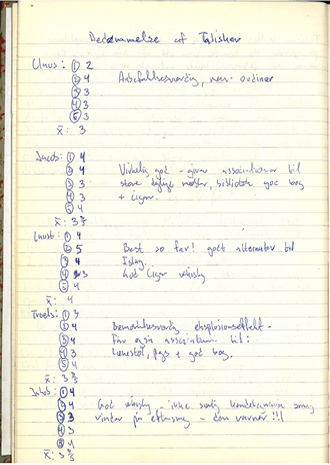 Bedømmelse af Talisker
Claus: ① 2
② 4 Anbefalelsesværdig, men ordinær
③ 3
④ 3
⑤ 3
x̄: 3
Jacob: ① 4
② 4 Virkelig god - giver associationer til
③ 3 store dybe møbler, bibliotek god bog
④ 3 + cigar.
⑤ 4
x̄: 3 3/5
① 4
② 5 Best so far! godt alternativ til
③ 4 Islay.
④ 3 God Cigar whisky
⑤ 4
x̄: 4
Troels: ① 3
② 4 Bemærkelsesværdig eksplosionseffekt -
③ 4 Får også associationer til:
④ 3 Lænestol, + god bog.
⑤ 4
x̄: 3 3/5
① 4
② 4 God whisky, ikke særlig smag
③ 3 vinder på - den varmer!!!
④ 3
⑤ 4
x̄: 3 3/5